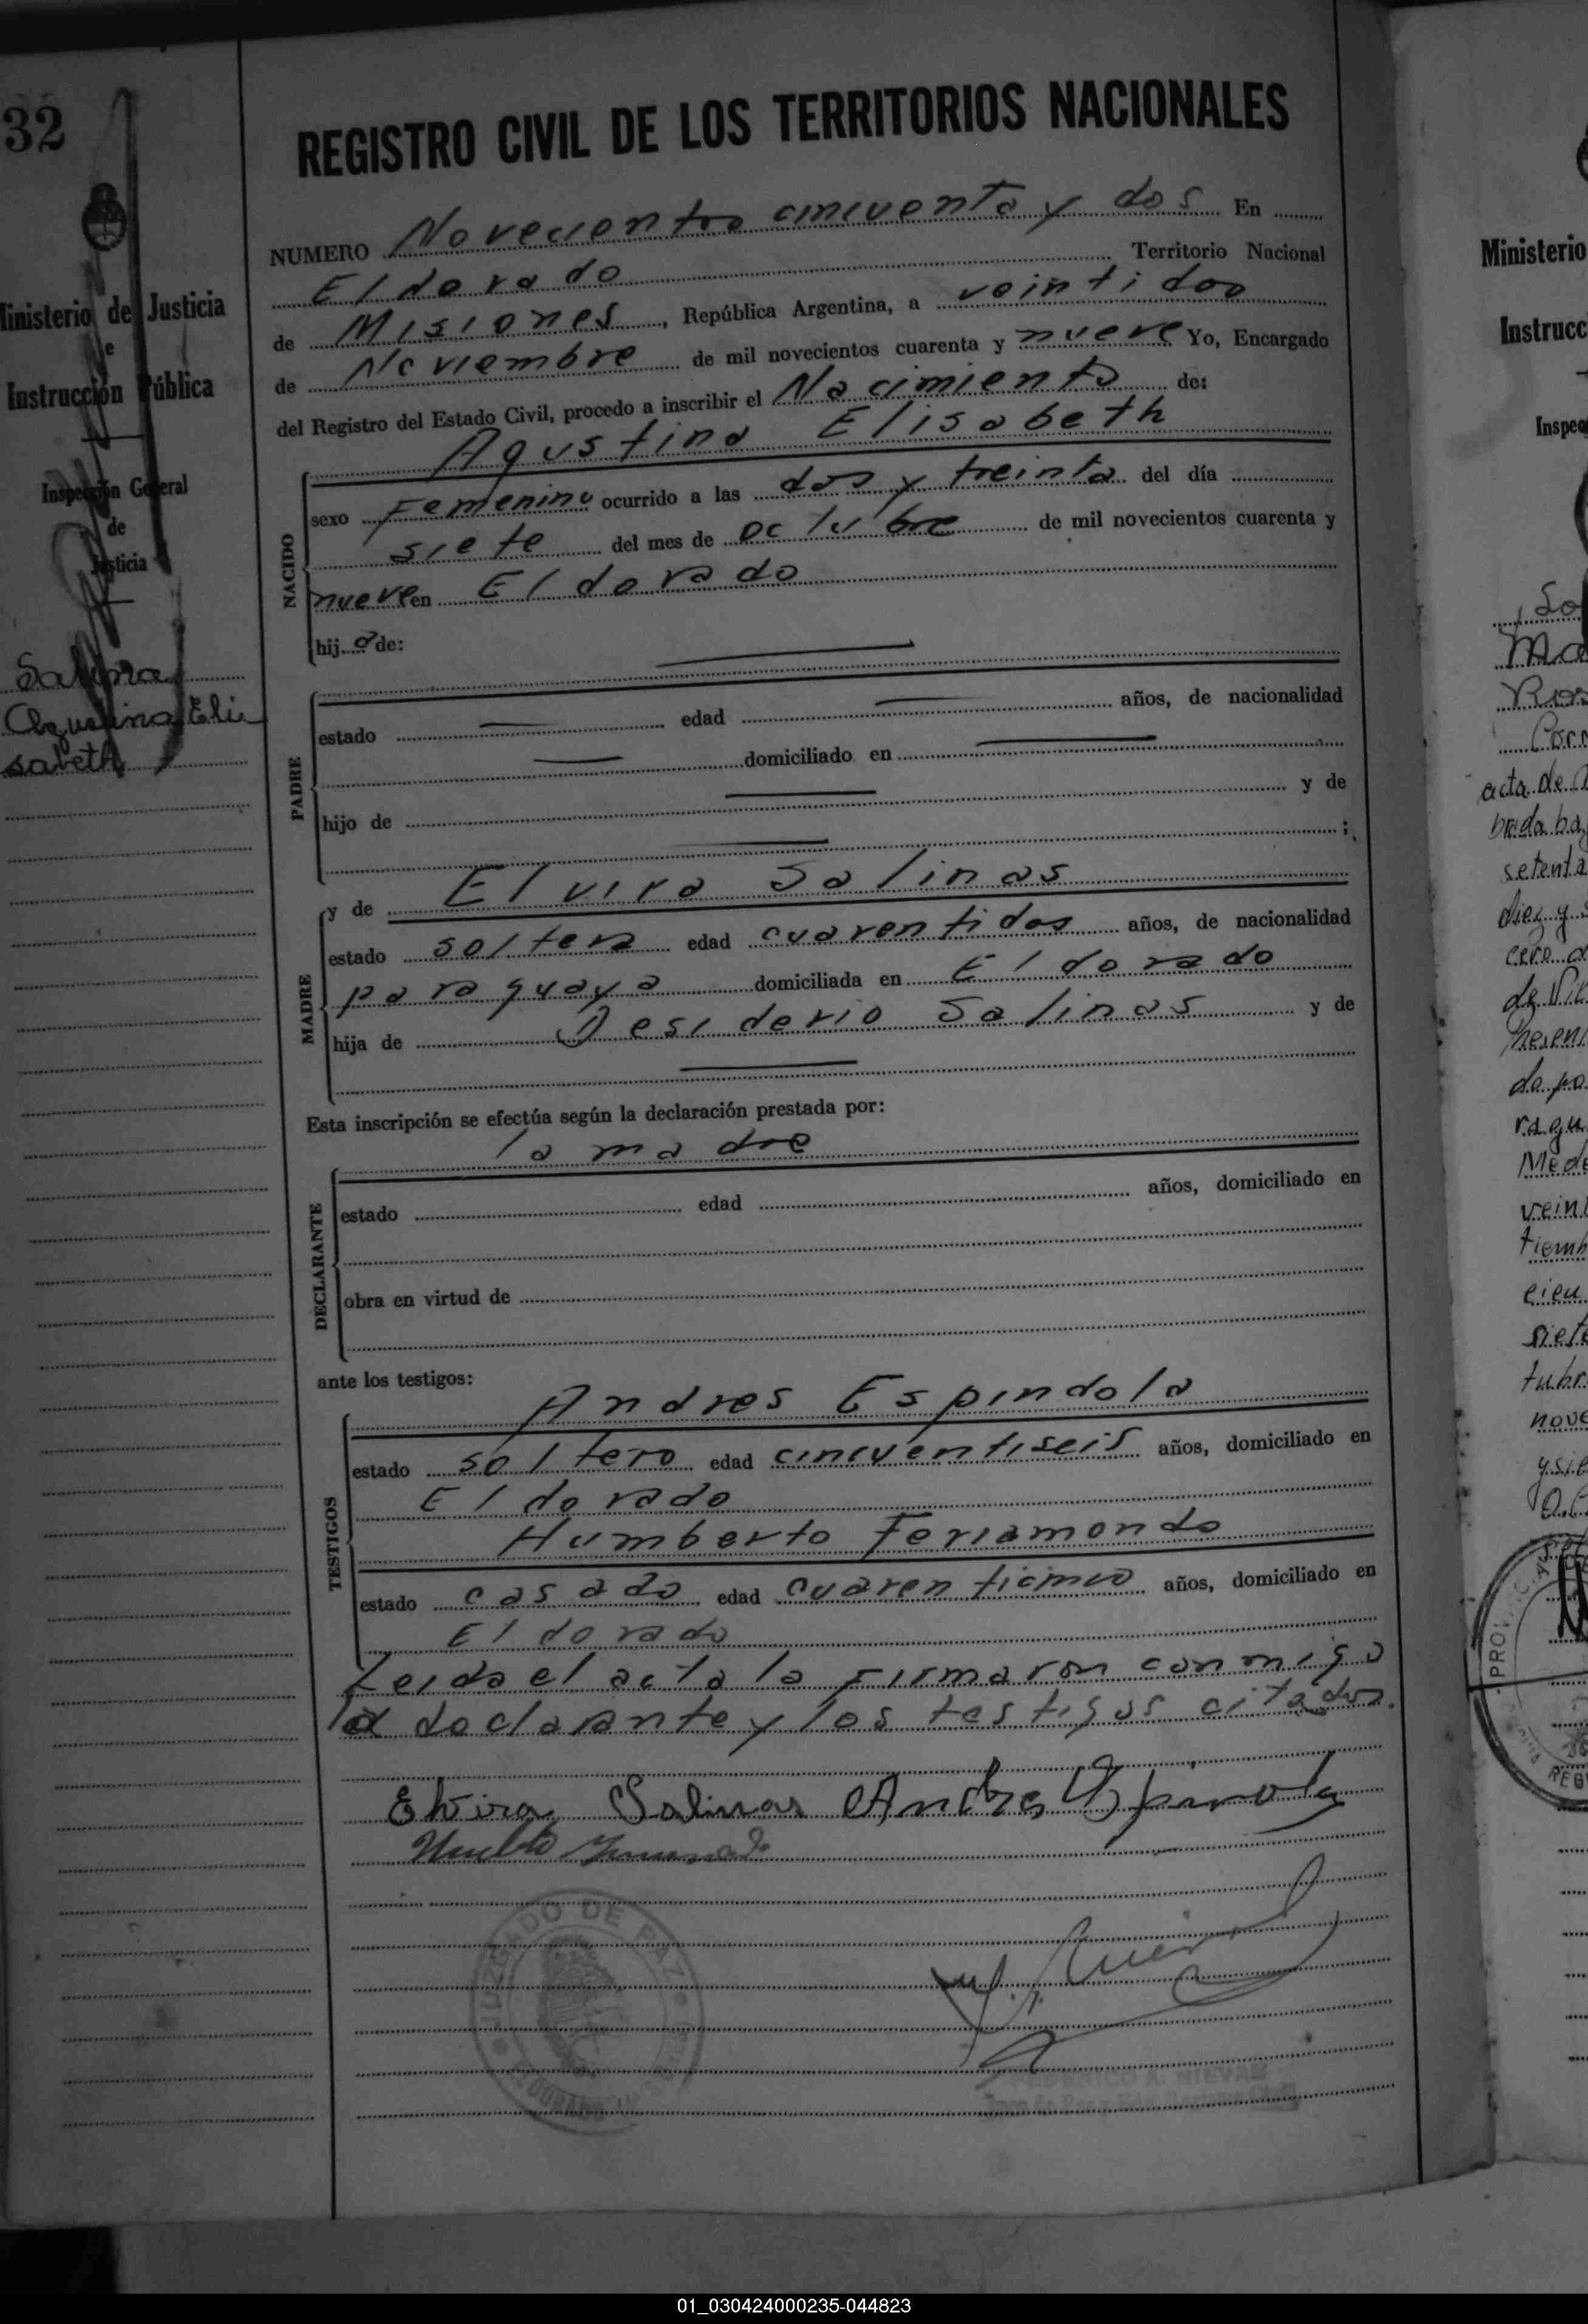 32
Ministerio de Justicia
e
Instrucción Pública
Inspección General
de
Justicia
Salinas
Agustina Eli
sabeth
REGISTRO CIVIL DE LOS TERRITORIOS NACIONALES
NUMERO Novecientos cincuenta y dos En
Eldorado Territorio Nacional
de Misiones, República Argentina, a veintidos
de Noviembre de mil novecientos cuarenta y nueve Yo, Encargado
del Registro del Estado Civil, procedo a inscribir el Nacimiento de:
Agustina Elisabeth
NACIDO
sexo Femenino ocurrido a las dos y treinta del día
siete del mes de octubre de mil novecientos cuarenta y
nueve en Eldorado
hij a de:
PADRE
estado edad años, de nacionalidad
domiciliado en
hijo de y de
;
y de Elvira Salinas
MADRE
estado soltera edad cuarentidos años, de nacionalidad
paraguaya domiciliada en Eldorado
hija de Desiderio Salinas y de
Esta inscripción se efectúa según la declaración prestada por:
la madre
DECLARANTE
estado edad años, domiciliado en
obra en virtud de
ante los testigos:
Andres Espindola
TESTIGOS
estado soltero edad cincuentiseis años, domiciliado en
Eldorado
Humberto Feriamondo
estado casado edad cuarenticinco años, domiciliado en
Eldorado
Leida el acta la firmaron conmigo
la declarante y los testigos citados.
Elvira Salinas Andres Espinola
JUZGADO DE PAZ
Ministerio
Instrucc
Inspec
So
Ma
Ros
Corr
acta de
brada ba
setenta
diez y
cero
de
do po
ragu
Mede
vein
tiemb
cieu
siet
tubr
nove
y sie
PROVINCIA
REG
01_030424000235-044823